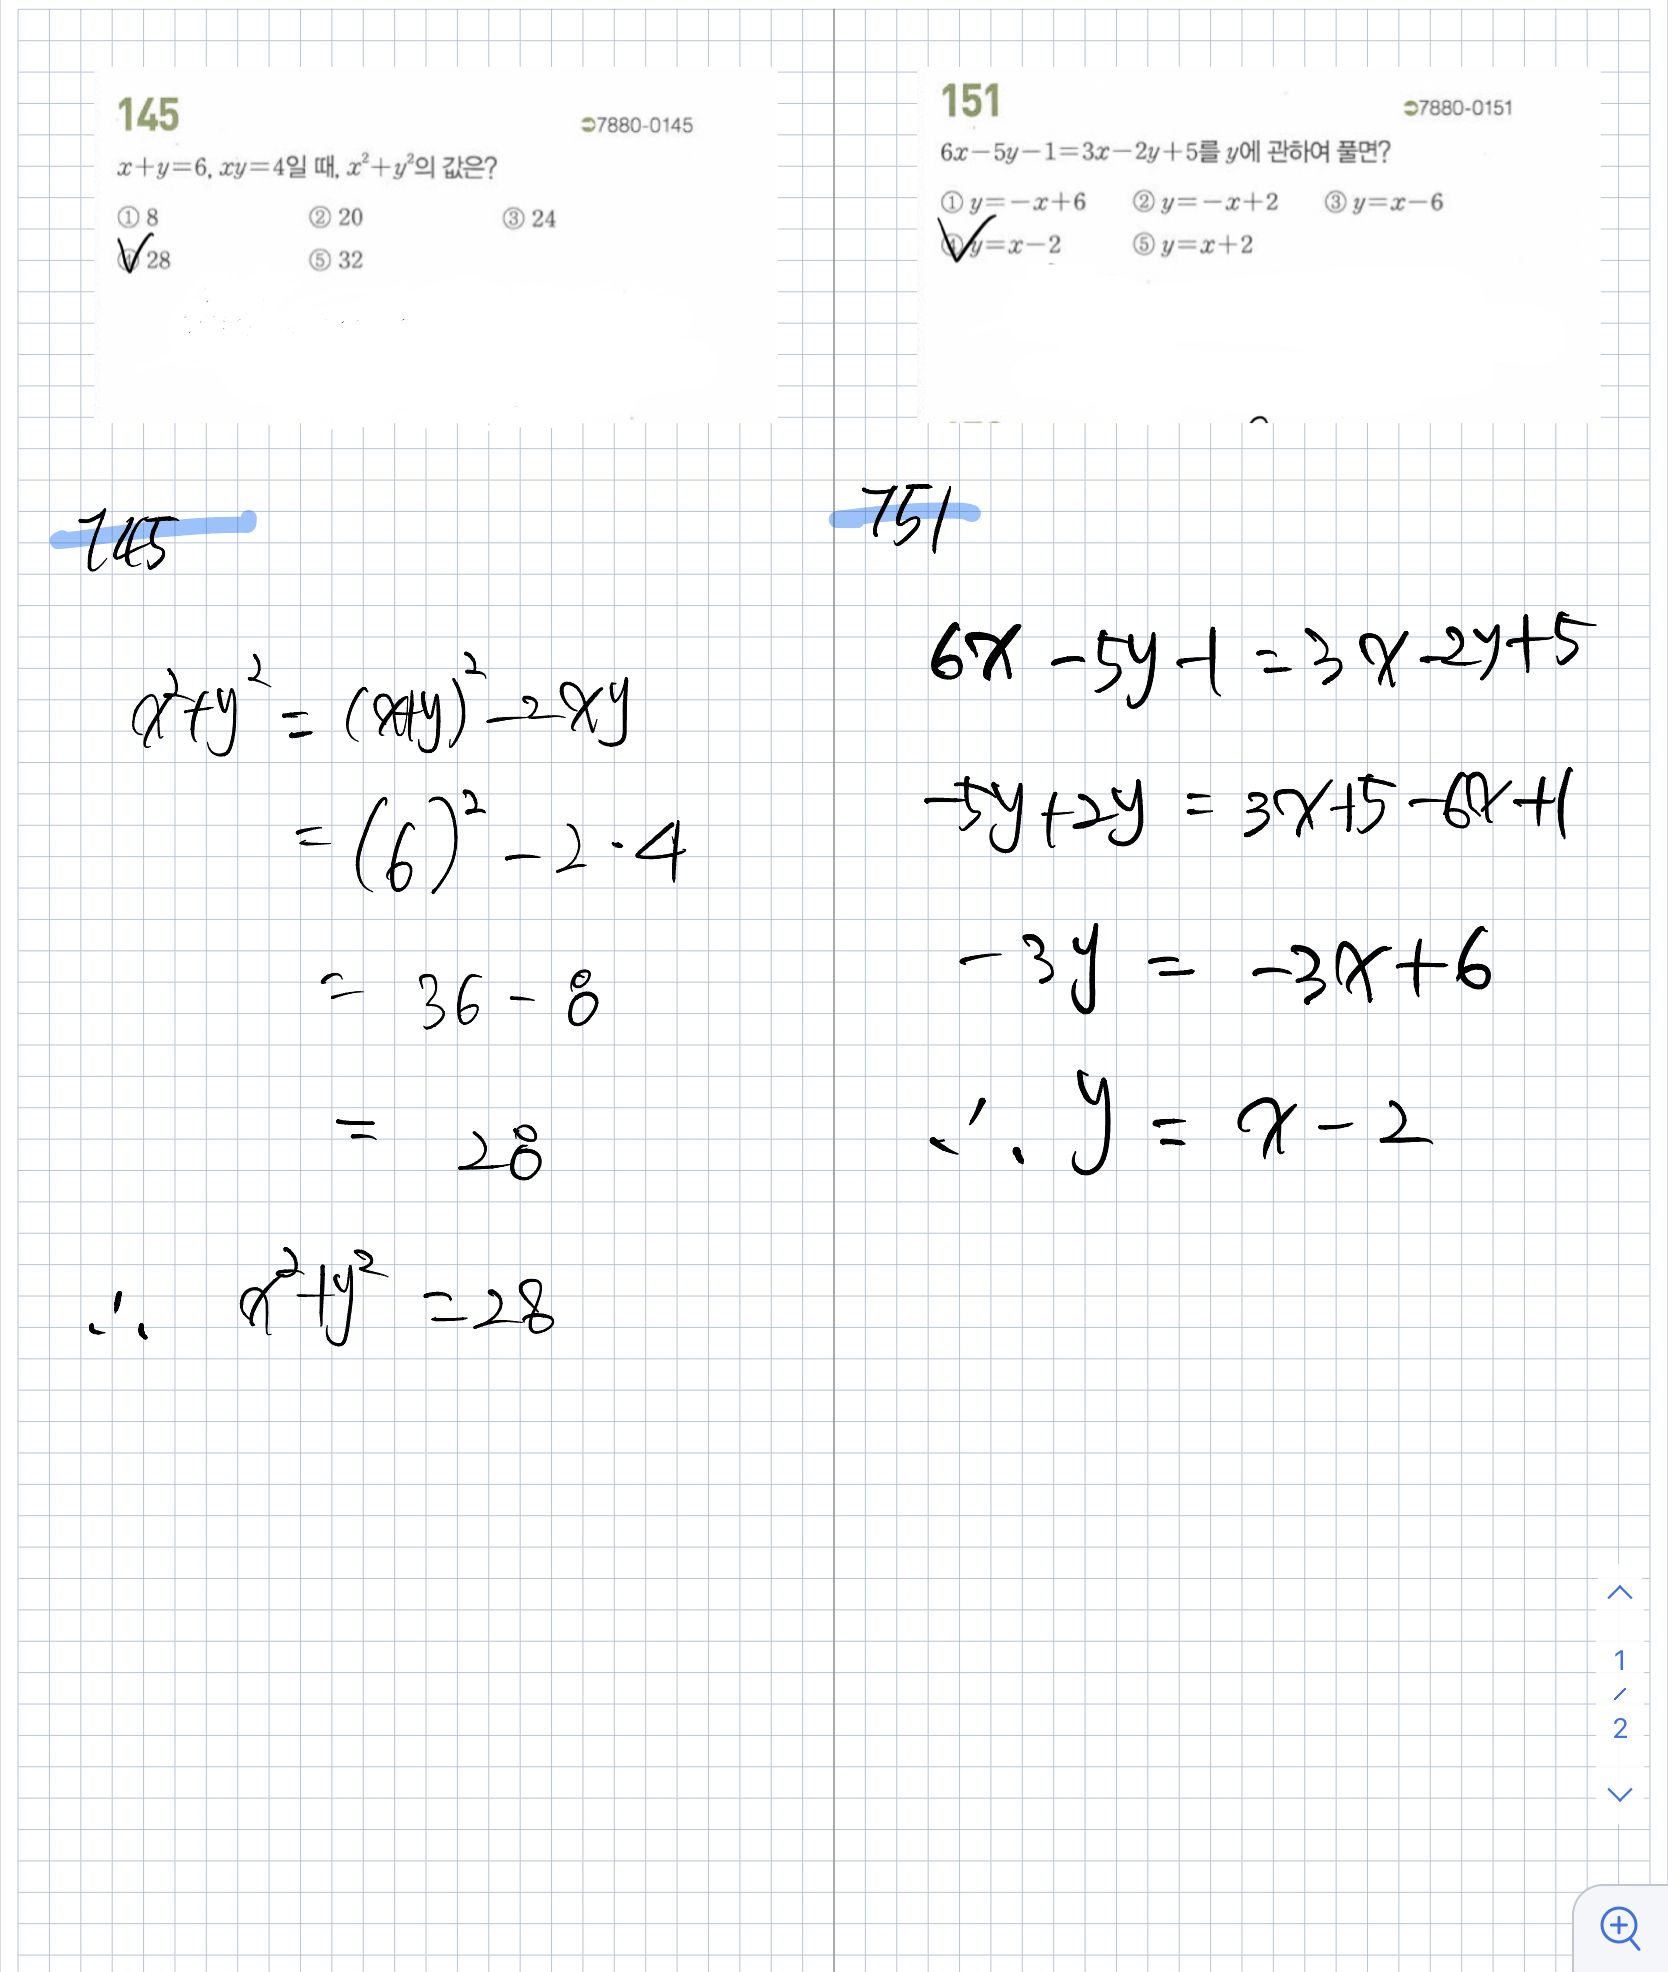 145
➲7880-0145
x+y=6, xy=4일 때, x²+y²의 값은?
① 8 ② 20 ③ 24
④ 28 ⑤ 32
145
x²+y² = (x+y)² -2xy
= (6)² - 2·4
= 36 - 8
= 28
∴ x²+y² = 28
151
➲7880-0151
6x-5y-1=3x-2y+5를 y에 관하여 풀면?
① y=-x+6 ② y=-x+2 ③ y=x-6
④ y=x-2 ⑤ y=x+2
151
6x -5y -1 = 3x -2y +5
-5y +2y = 3x +5 -6x +1
-3y = -3x +6
∴ y = x - 2
1
/
2